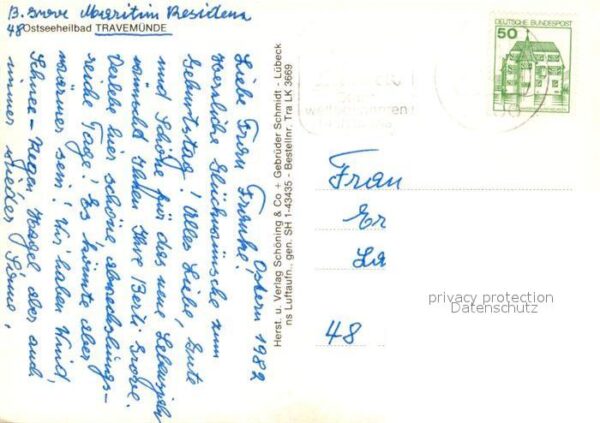 B. Grove Maritim Residenz
48
Ostseeheilbad TRAVEMÜNDE
Ostern 1982
Liebe Frau Franke!
Herzliche Glückwünsche zum
Geburtstag! Alles Liebe, Gute
und Schöne für das neue Lebensjahr
wünscht Ihnen Ihre Berti Grove.
Verlebe hier schöne, abwechslungs-
reiche Tage! Es könnte aber
wärmer sein! Wir haben Wind,
Schnee - Regen Hagel aber auch
immer wieder Sonne!
Herst. u. Verlag Schöning & Co + Gebrüder Schmidt - Lübeck
ns Luftaufn., gen. SH 1-43435 - Bestellnr. Tra LK 3669
50
DEUTSCHE BUNDESPOST
Frau
Er
La
48
privacy protection
Datenschutz